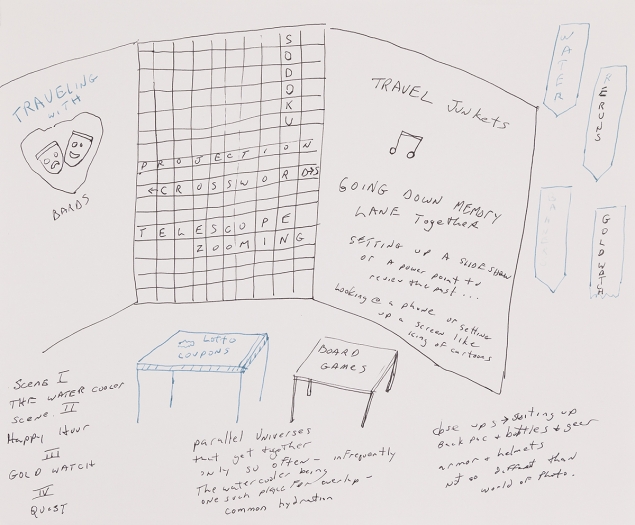 TRAVELING
WITH
BARDS
SODOKU
PROJECTION
←CROSSWORD→S
TELESCOPE
ZOOMING
TRAVEL JUNKETS
GOING DOWN MEMORY
LANE Together
SETTING UP A SLIDE SHOW
or A power point to
review the past...
Looking @ a phone or setting
up a screen like
icing of cartoons
WATER
RERUNS
GOLD WATCH
Lotto
COUPONS
BOARD
GAMES
Scene I
THE WATER COOLER
Scene II
Happy Hour
III
GOLD WATCH
IV
QUEST
parallel Universes
that get together
only so often - infrequently
The watercooler being
one such place for overlap -
common hydration
close ups → suiting up
Back pac + bottles + gear
armor + helmets
Not so Different than
world of photo.